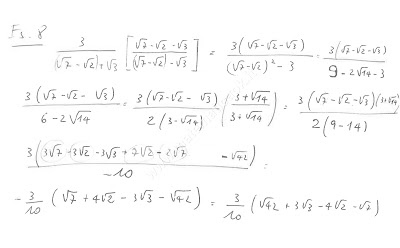 Es. 8
3 / ((√7 - √2) + √3) [ (√7 - √2 - √3) / ((√7 - √2) - √3) ] = 3(√7 - √2 - √3) / ((√7 - √2)² - 3) = 3(√7 - √2 - √3) / (9 - 2√14 - 3)
3(√7 - √2 - √3) / (6 - 2√14) = 3(√7 - √2 - √3) / (2(3 - √14)) ((3 + √14) / (3 + √14)) = 3(√7 - √2 - √3)(3 + √14) / (2(9 - 14))
3(3√7 - 3√2 - 3√3 + 7√2 - 2√7 - √42) / -10 =
- 3/10 (√7 + 4√2 - 3√3 - √42) = 3/10 (√42 + 3√3 - 4√2 - √7)